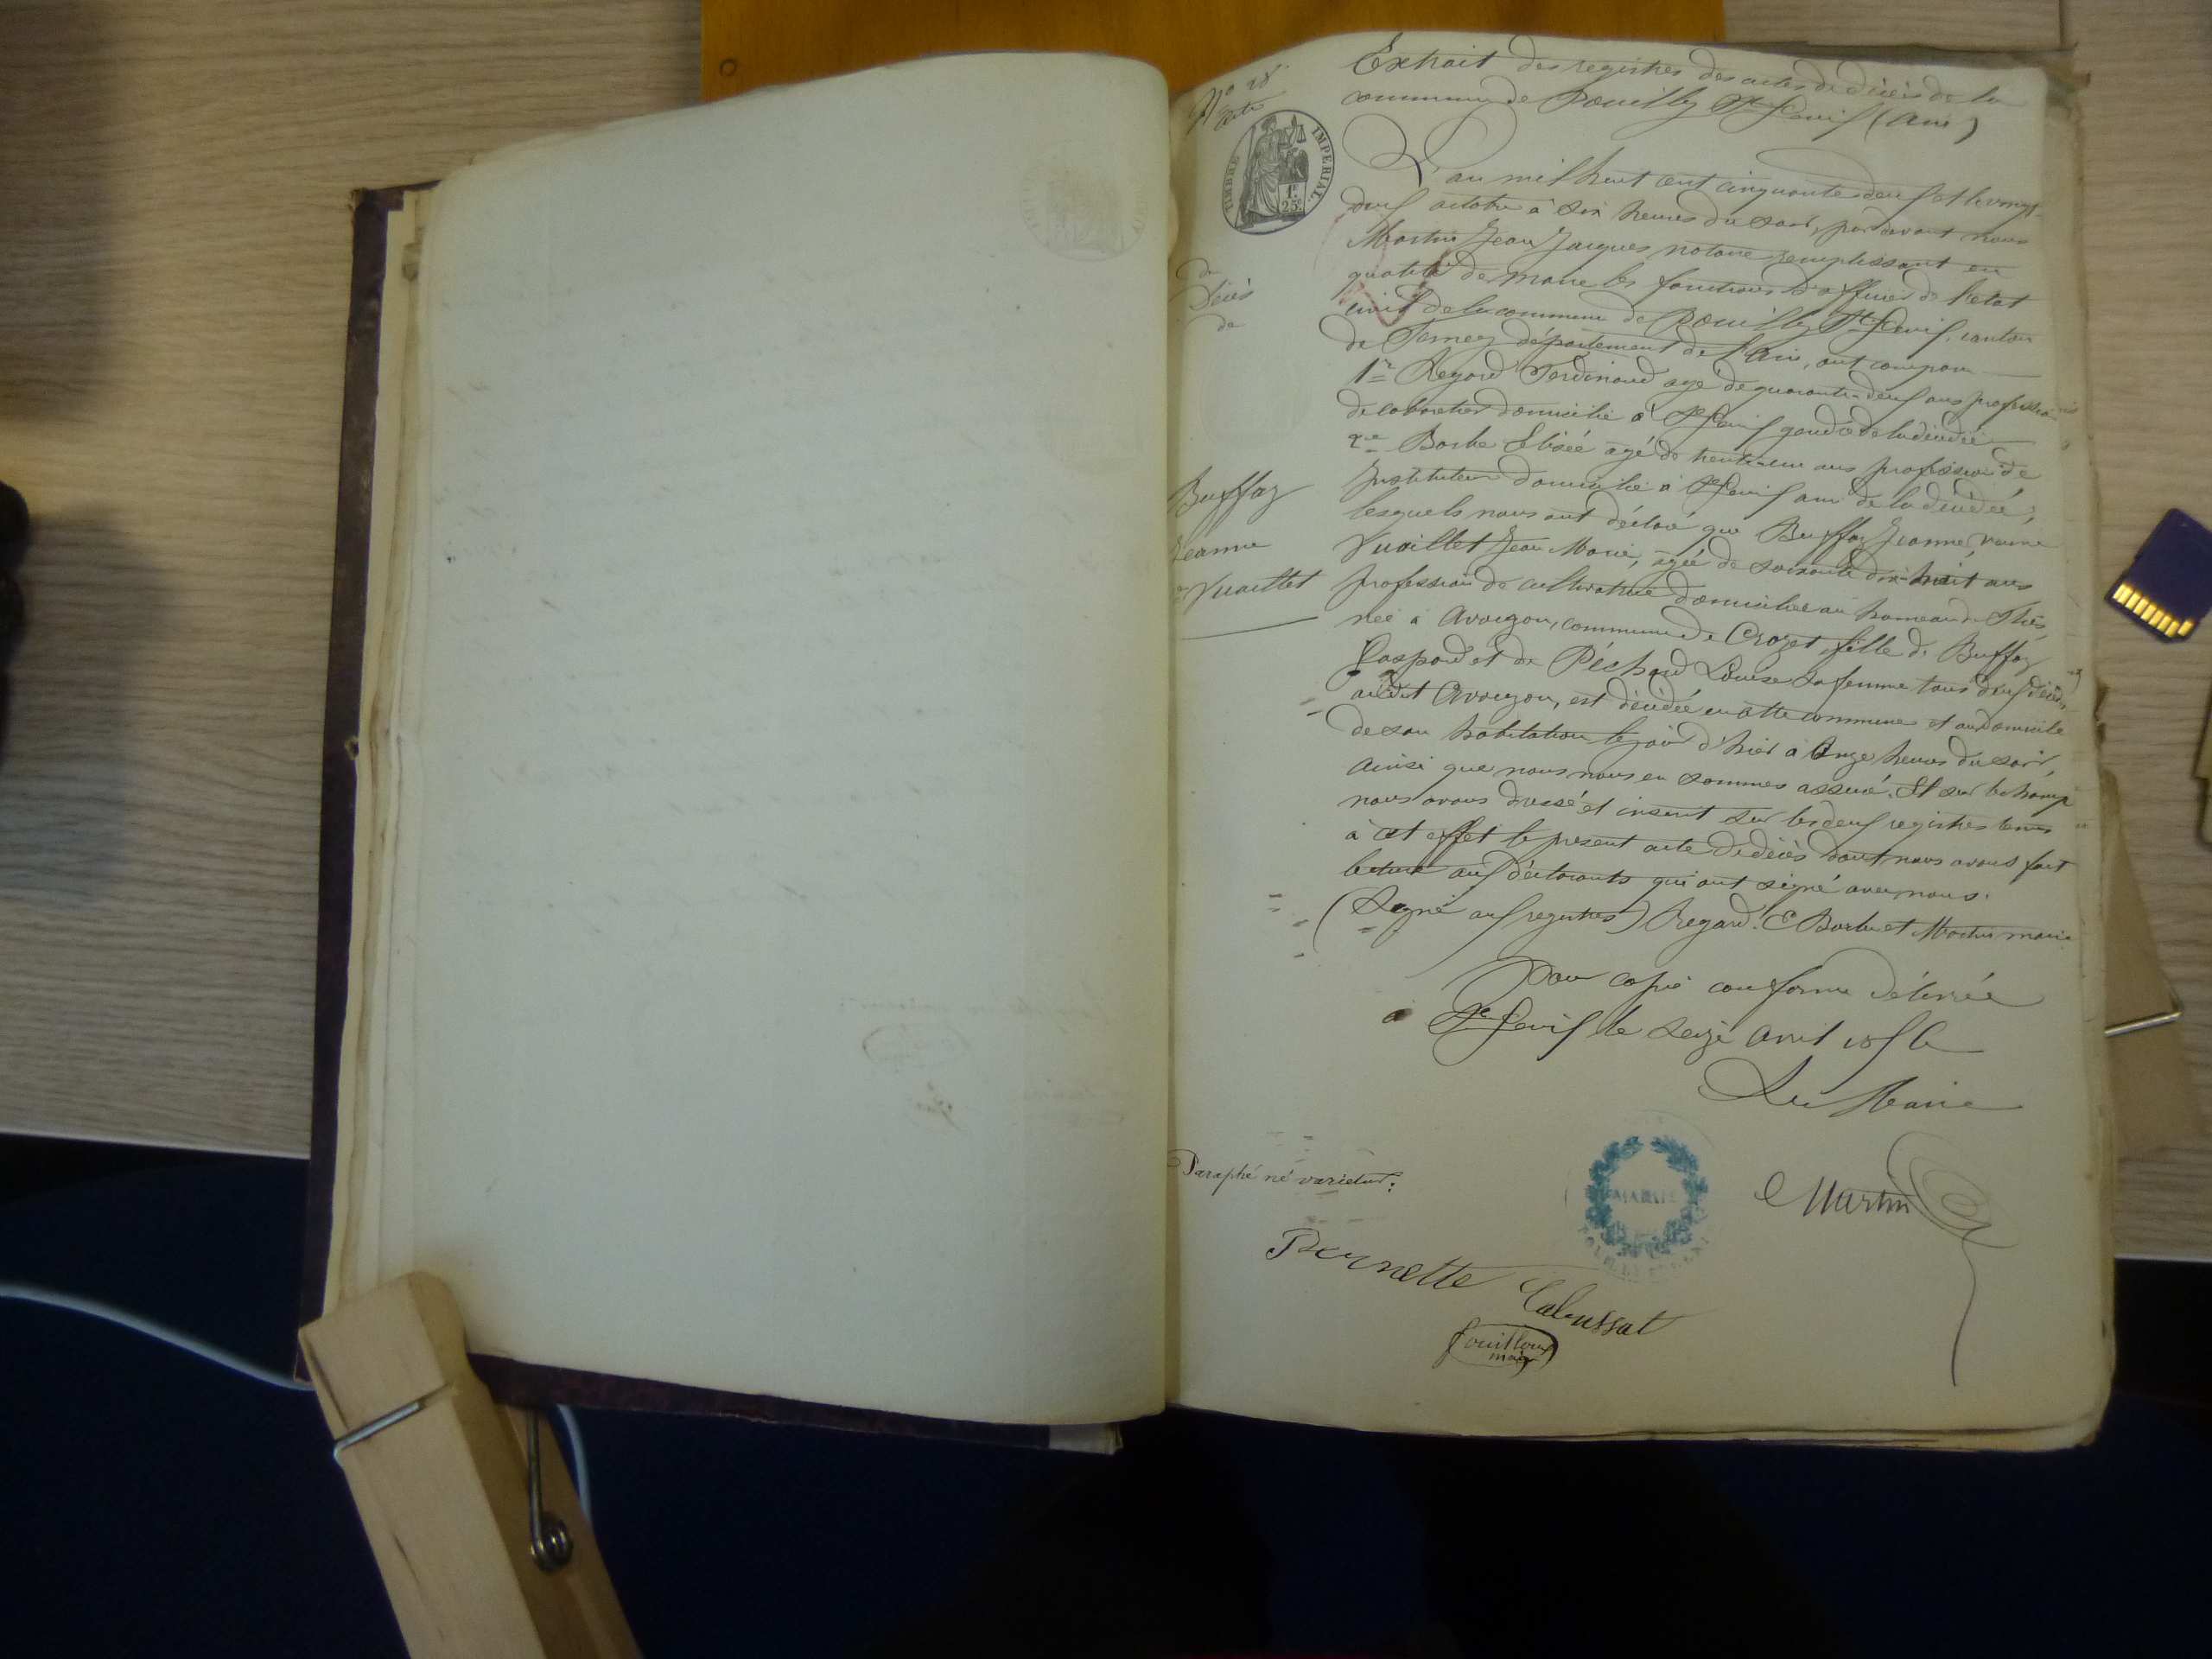 Extrait des registres des actes de décès de la
commune de Pouilly St Genis (Ain)
No 28
Acte
TIMBRE IMPERIAL
1f.
25c.
L'an mil huit cent cinquante deux et le vingt
deux octobre à six heures du soir, par devant nous
Martin Jean Jacques notaire remplissant en
qualité de maire les fonctions d'officier de l'état
civil de la commune de Pouilly St Genis, canton
de Ferney département de l'Ain, ont comparu
de
Décès
de
1er Regard Ferdinand agé de quarante deux ans profession
de cabaretier domicilié à St Genis de la décédée
2me Barbe Elisée agé de ans profession de
Instituteur domicilié à St Genis ami de la décédée,
lesquels nous ont déclaré que Buffaz Jeanne, veuve
Vuaillet Jean Marie, agée de soixante dix huit ans
profession de cultivatrice domiciliée au hameau de
née à Avouzon, commune de Crozet, fille de Buffaz
Gaspard et de Péchoud Louise sa femme tous deux décédés
audit Avouzon, est décédée en cette commune et au domicile
de son habitation le jour d'hier à Onze heures du soir,
ainsi que nous nous en sommes assuré. Et sur le champ
nous avons dressé et inscrit sur les deux registres tenus
à cet effet le présent acte de décès dont nous avons fait
lecture aux déclarants qui ont signé avec nous.
(Signé aux registres) Regard. E Barbe et Martin maire
Buffaz
Jeanne
Vuaillet
Pour copie conforme délivrée
à St Genis le seize avril
Le Maire
Paraphé né varietur:
MAIRIE
Martin
Pernette
Calussat
Fouilloux
maire